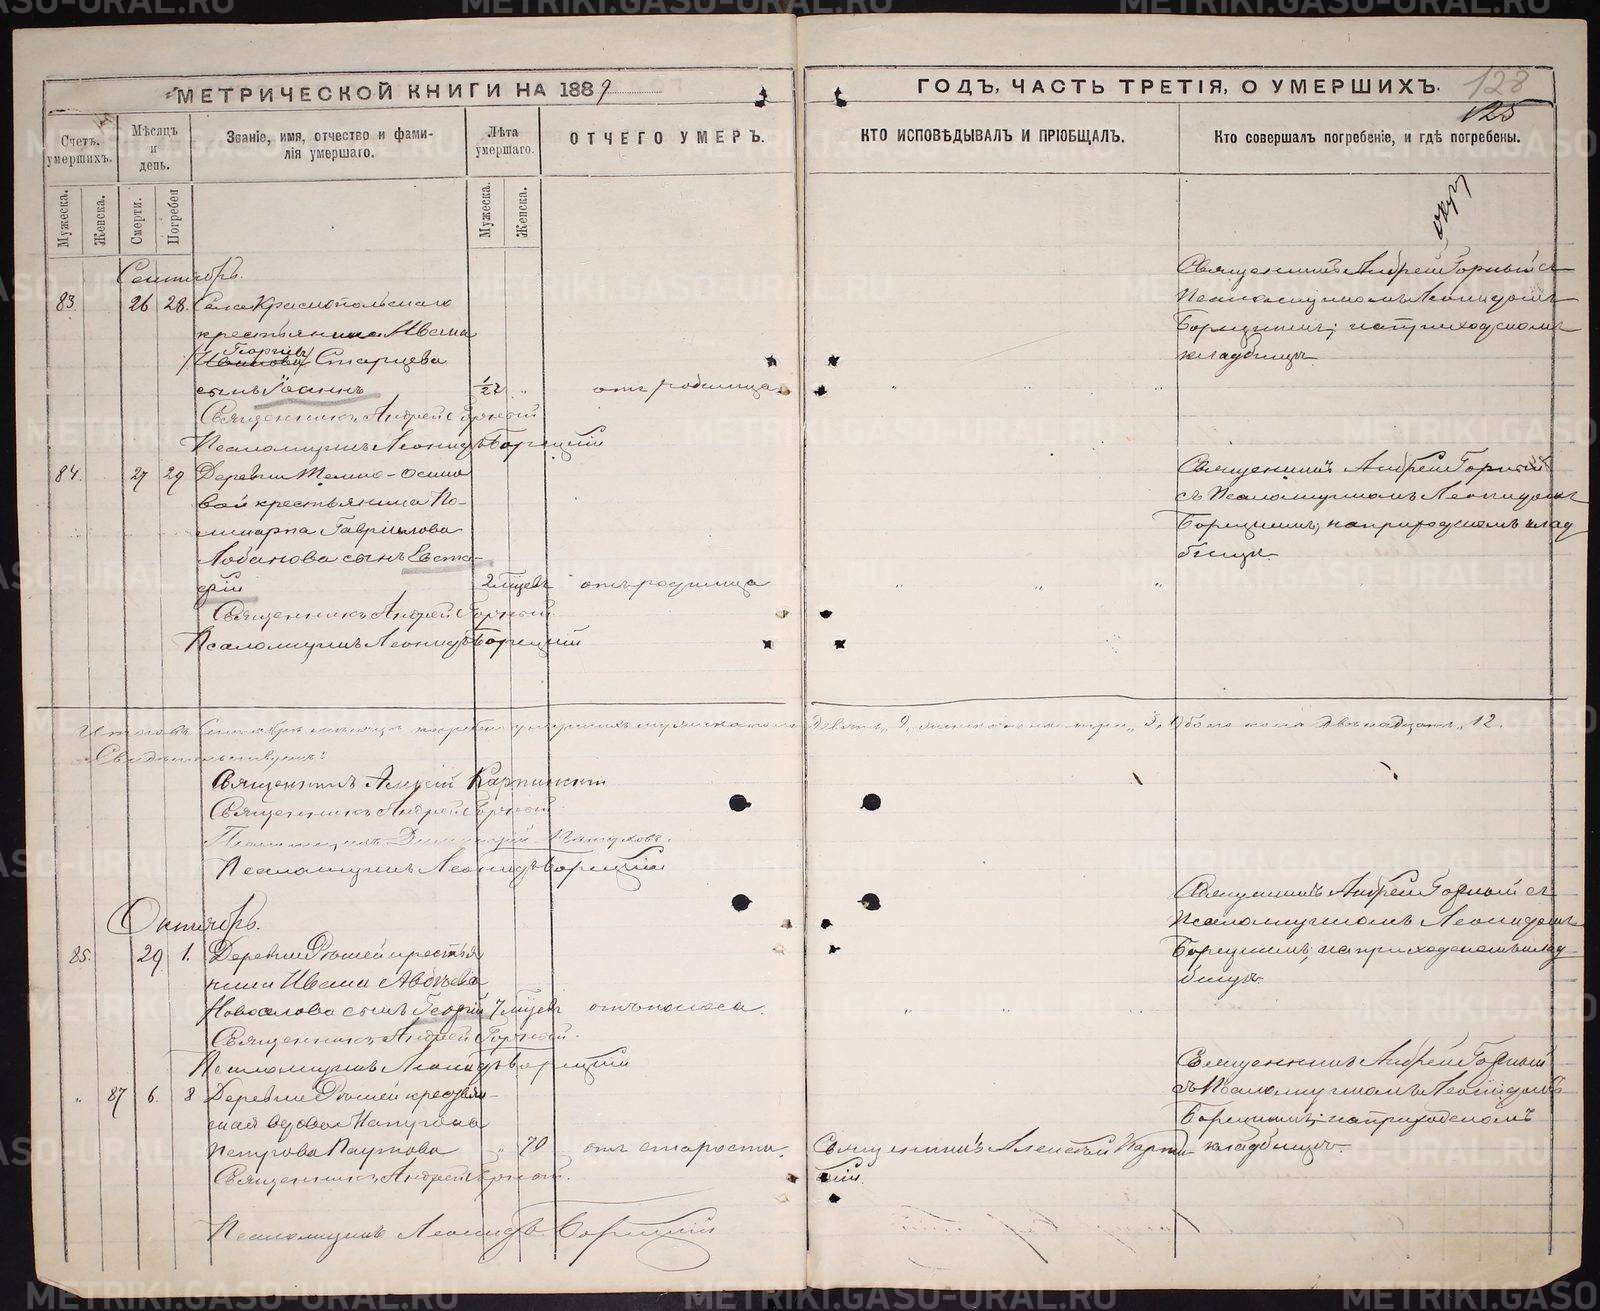 МЕТРИЧЕСКОЙ КНИГИ НА 1889
ГОДЪ, ЧАСТЬ ТРЕТІЯ, О УМЕРШИХЪ.
128
125
Счетъ умершихъ.
Мѣсяцъ и день.
Званіе, имя, отчество и фами-
лія умершаго.
Лѣта умершаго.
ОТЧЕГО УМЕРЪ.
КТО ИСПОВѢДЫВАЛЪ И ПРІОБЩАЛЪ.
Кто совершалъ погребеніе, и гдѣ погребены.
Мужеска.
Женска.
Смерти.
Погребен
Мужеска.
Женска.
Сентябрь.
83. 26 28. Села Краснопольскаго
крестьянина Ивана
Георгіев
Старцева
сынъ Іоаннъ 1/2 " отъ родимца " " "
Священникъ Андрей Горный съ
Псаломщикомъ Леонидомъ
Борецкимъ; на приходскомъ
кладбищѣ
Священникъ Андрей Горный
Псаломщикъ Леонидъ Борецкій
84. 27 29 Деревни Темно-Осино
вой крестьянина По-
ликарпа Гавріилова
Лобанова сынъ Евста-
фій 2 мѣсяц отъ родимца " " "
Священникъ Андрей Горный
съ Псаломщикомъ Леонидомъ
Борецкимъ; на приходскомъ клад
бищѣ
Священникъ Андрей Горный
Псаломщикъ Леонидъ Борецкій
Итого въ Сентябрѣ мѣсяцѣ умершихъ мужеска пола девять, 9, женска три, 3, Обоего пола двѣнадцать, 12.
Свидѣтельствуемъ:
Священникъ Алексій Карпинскій
Священникъ Андрей Горный
Псаломщикъ
Псаломщикъ Леонидъ Борецкій
Октябрь.
85. 29 1. Деревни крестья
нина Ивана Авдѣева
Новоселова сынъ Георгій 7 мѣсяц отъ поноса. " "
Священникъ Андрей Горный съ
Псаломщикомъ Леонидомъ
Борецкимъ; на приходскомъ клад
бищѣ
Священникъ Андрей Горный
Псаломщикъ Леонидъ Борецкій
" 87 6. 8 Деревни крестьян-
ская вдова
Петрова Паутова " 70 отъ старости. Священникъ Алексій Карпин
скій.
Священникъ Андрей Горный
съ Псаломщикомъ Леонидомъ
Борецкимъ; на приходскомъ
кладбищѣ.
Священникъ Андрей Горный.
Псаломщикъ Леонидъ Борецкій
METRIKI.GASO-URAL.RU